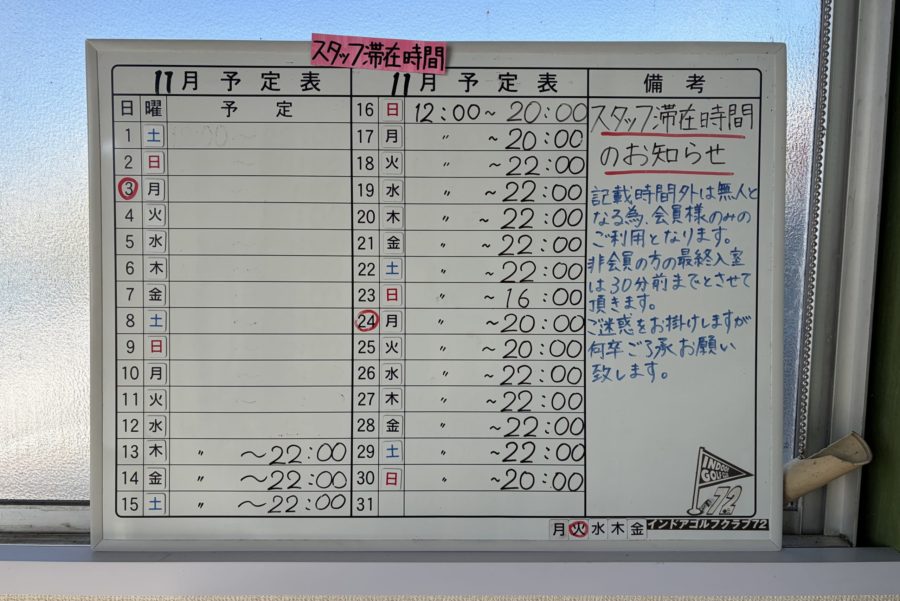 スタッフ滞在時間
11月 予定表
日 曜 予定
1 土
2 日
3 月
4 火
5 水
6 木
7 金
8 土
9 日
10 月
11 火
12 水
13 木 〃 ～22:00
14 金 〃 ～22:00
15 土 〃 ～22:00
11月 予定表
16 日 12:00～20:00
17 月 〃 ～20:00
18 火 〃 ～22:00
19 水 〃 ～22:00
20 木 〃 ～22:00
21 金 〃 ～22:00
22 土 〃 ～22:00
23 日 〃 ～16:00
24 月 〃 ～20:00
25 火 〃 ～20:00
26 水 〃 ～22:00
27 木 〃 ～22:00
28 金 〃 ～22:00
29 土 〃 ～22:00
30 日 〃 ～20:00
31
備考
スタッフ滞在時間
のお知らせ
記載時間外は無人と
なる為、会員様のみの
ご利用となります。
非会員の方の最終入室
は30分前までとさせて
頂きます。
ご迷惑をお掛けしますが
何卒ご了承お願い
致します。
INDOOR
GOLF
72
月火水木金 インドアゴルフクラブ72